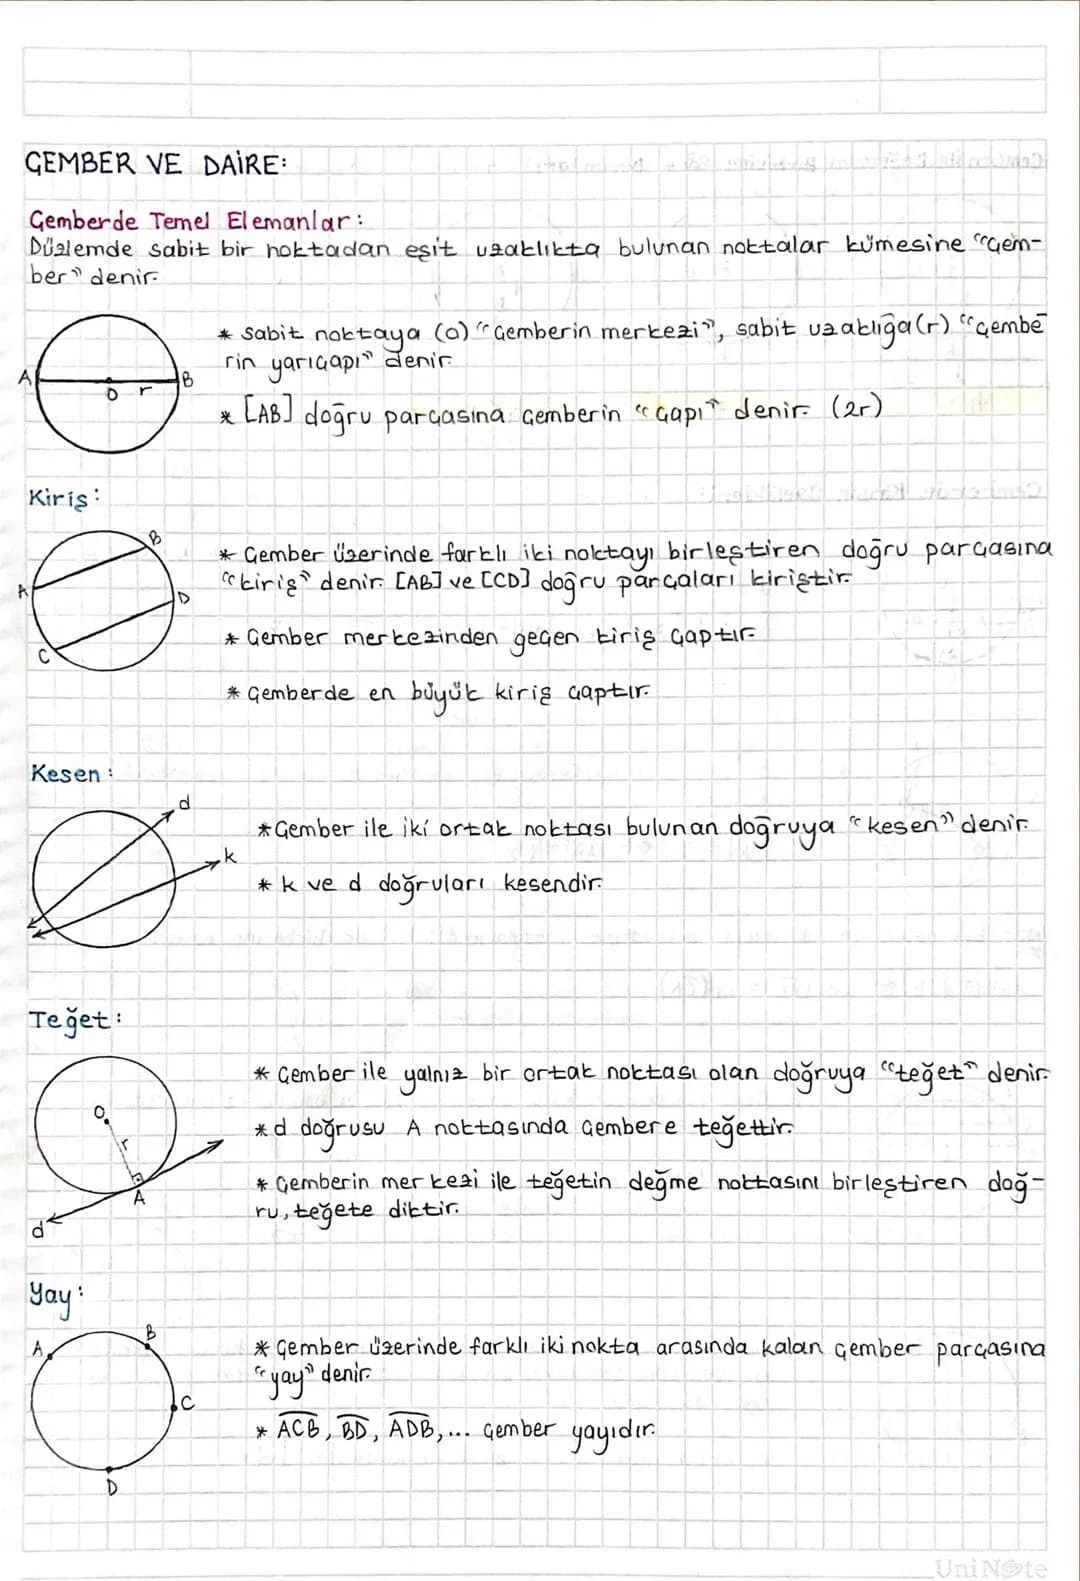 ÇEMBER VE DAİRE:
Çemberde Temel Elemanlar:
Düzlemde sabit bir noktadan eşit uzaklıkta bulunan noktalar kümesine "çem-
ber" denir.
* Sabit noktaya (o) "Çemberin merkezi", sabit uzaklığa(r) "çembe
rin yarıçapı" denir.
A B
O r
* [AB] doğru parçasına çemberin "çapı" denir. (2r)
Kiriş:
B
* Çember üzerinde farklı iki noktayı birleştiren doğru parçasına
"kiriş" denir. [AB] ve [CD] doğru parçaları kiriştir.
A D
* Çember merkezinden geçen kiriş çaptır.
C
* Çemberde en büyük kiriş çaptır.
Kesen:
d
* Çember ile iki ortak noktası bulunan doğruya "kesen" denir.
k
* k ve d doğruları kesendir.
Teğet:
* Çember ile yalnız bir ortak noktası olan doğruya "teğet" denir.
O
* d doğrusu A noktasında çembere teğettir.
r
* Çemberin merkezi ile teğetin değme noktasını birleştiren doğ-
ru, teğete diktir.
A
d
Yay:
A B
* Çember üzerinde farklı iki nokta arasında kalan çember parçasına
"yay" denir.
C
* ACB, BD, ADB,... çember yayıdır.
D
UniNote